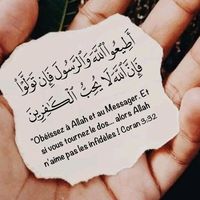 أَطِيعُوا اللَّهَ وَالرَّسُولَ فَإِن تَوَلَّوْا
فَإِنَّ اللَّهَ لَا يُحِبُّ الْكَافِرِينَ
"Obéissez à Allah et au Messager. Et
si vous tournez le dos... alors Allah
n'aime pas les infidèles ! Coran 3:32